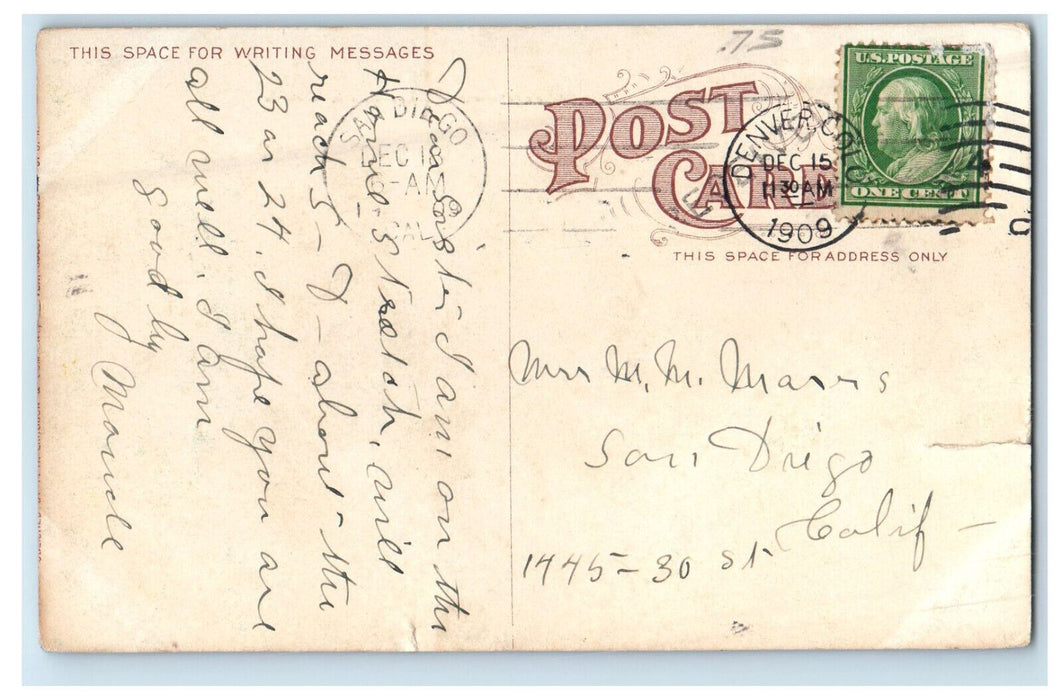 THIS SPACE FOR WRITING MESSAGES
Dear Sister I am on the
Home Stretch, will
reach S-D- about the
23 or 24. I hope you are
all well. I am
good by
Maude
.75
POST CARD
THIS SPACE FOR ADDRESS ONLY
U.S. POSTAGE
ONE CENT
DENVER, COLO.
DEC 15
11 30 AM
1909
SAN DIEGO
DEC 1
-AM
CAL
Mrs M. M. Mavis
San Diego
Calif -
1445-30 St